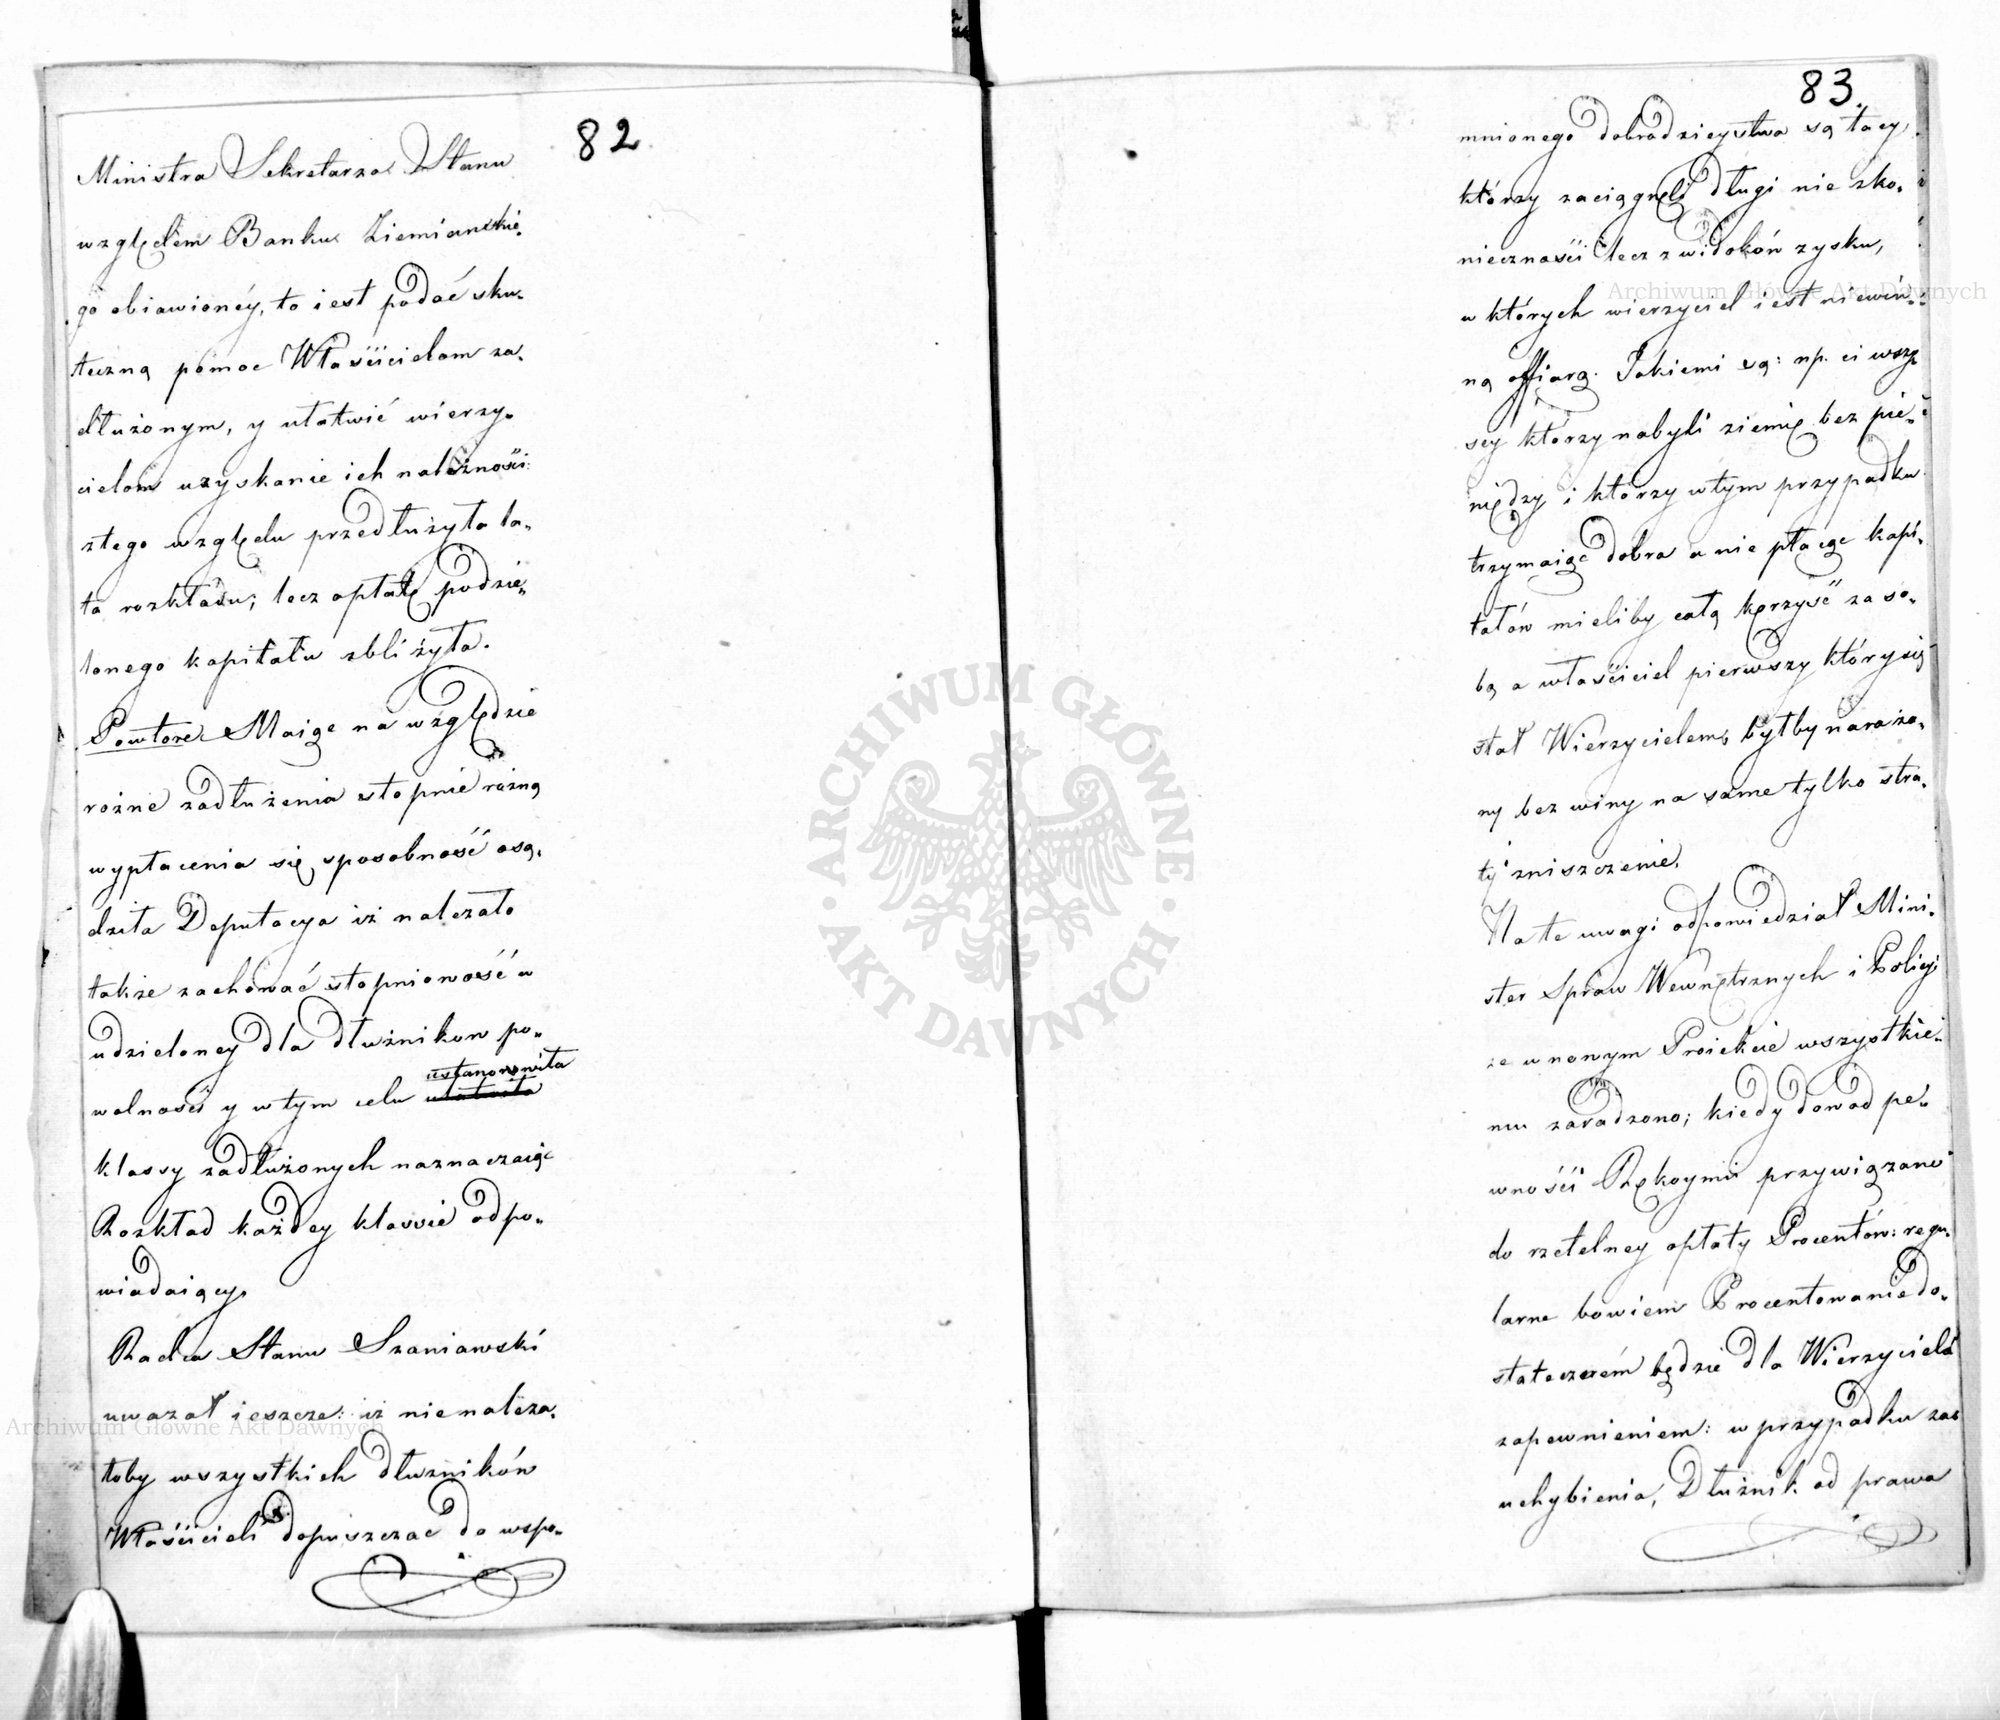 82
Ministra Sekretarza Stanu
względem Banku Ziemianskie-
go obiawionéy, to iest podać sku-
teczną pomoc Właścicielom za-
dłużonym, y ułatwić wierzy-
cielom uzyskanie ich należności:
ztego względu przedłużyła la-
ta rozkładu; lecz opłatę podzie-
lonego kapitału zbliżyła.
Powtore Maiąc na względzie
rożne zadłużenia stopnie rożną
wypłacenia się sposobność osą-
dziła Deputacya iż nalezało
także zachować stopniowość w
udzieloney dla dłużnikow po-
ustanowiła
wolności y w tym celu
klassy zadłużonych naznaczaiąc
Rozkład każdey klassie odpo-
wiadaiący.
Radca Stanu Szaniawski
uwazał ieszcze: iż nienaleza-
łoby wszystkich dłuzników
Właścicieli dopuszczac do wspo-
83.
mnionego dobrodzieystwa są tacy
którzy zaciągnęli długi nie zko-
nieczności lecz z widoków zysku,
w których wierzyciel iest niewin-
ną offiarą. Jakiemi są: np. ci wszy-
scy którzy nabyli ziemię bez pie-
niędzy i którzy wtym przypadku
trzymaiąc dobra a nie płacąc kapi-
tałów mieliby całą korzyść za so-
bą a właściciel pierwszy który się
stał Wierzycielem, byłby narażo-
ny bez winy na same tylko stra-
ty i zniszczenie.
Na te uwagi odpowiedział Mini-
ster Spraw Wewnętrznych i Policyi
ze w nowym Proiekcie wszystkie-
mu zaradzono; kiedy dowod pe-
wności Rękoymi przywiązano
do rzetelney opłaty Procentów: regu-
larne bowiem Procentowanie do-
stateczném będzie dla Wierzyciela
zapewnieniem: w przypadku zas
uchybienia, Dłużnik od prawa
ARCHIWUM GŁÓWNE
AKT DAWNYCH
Archiwum Główne Akt Dawnych
Archiwum Główne Akt Dawnych